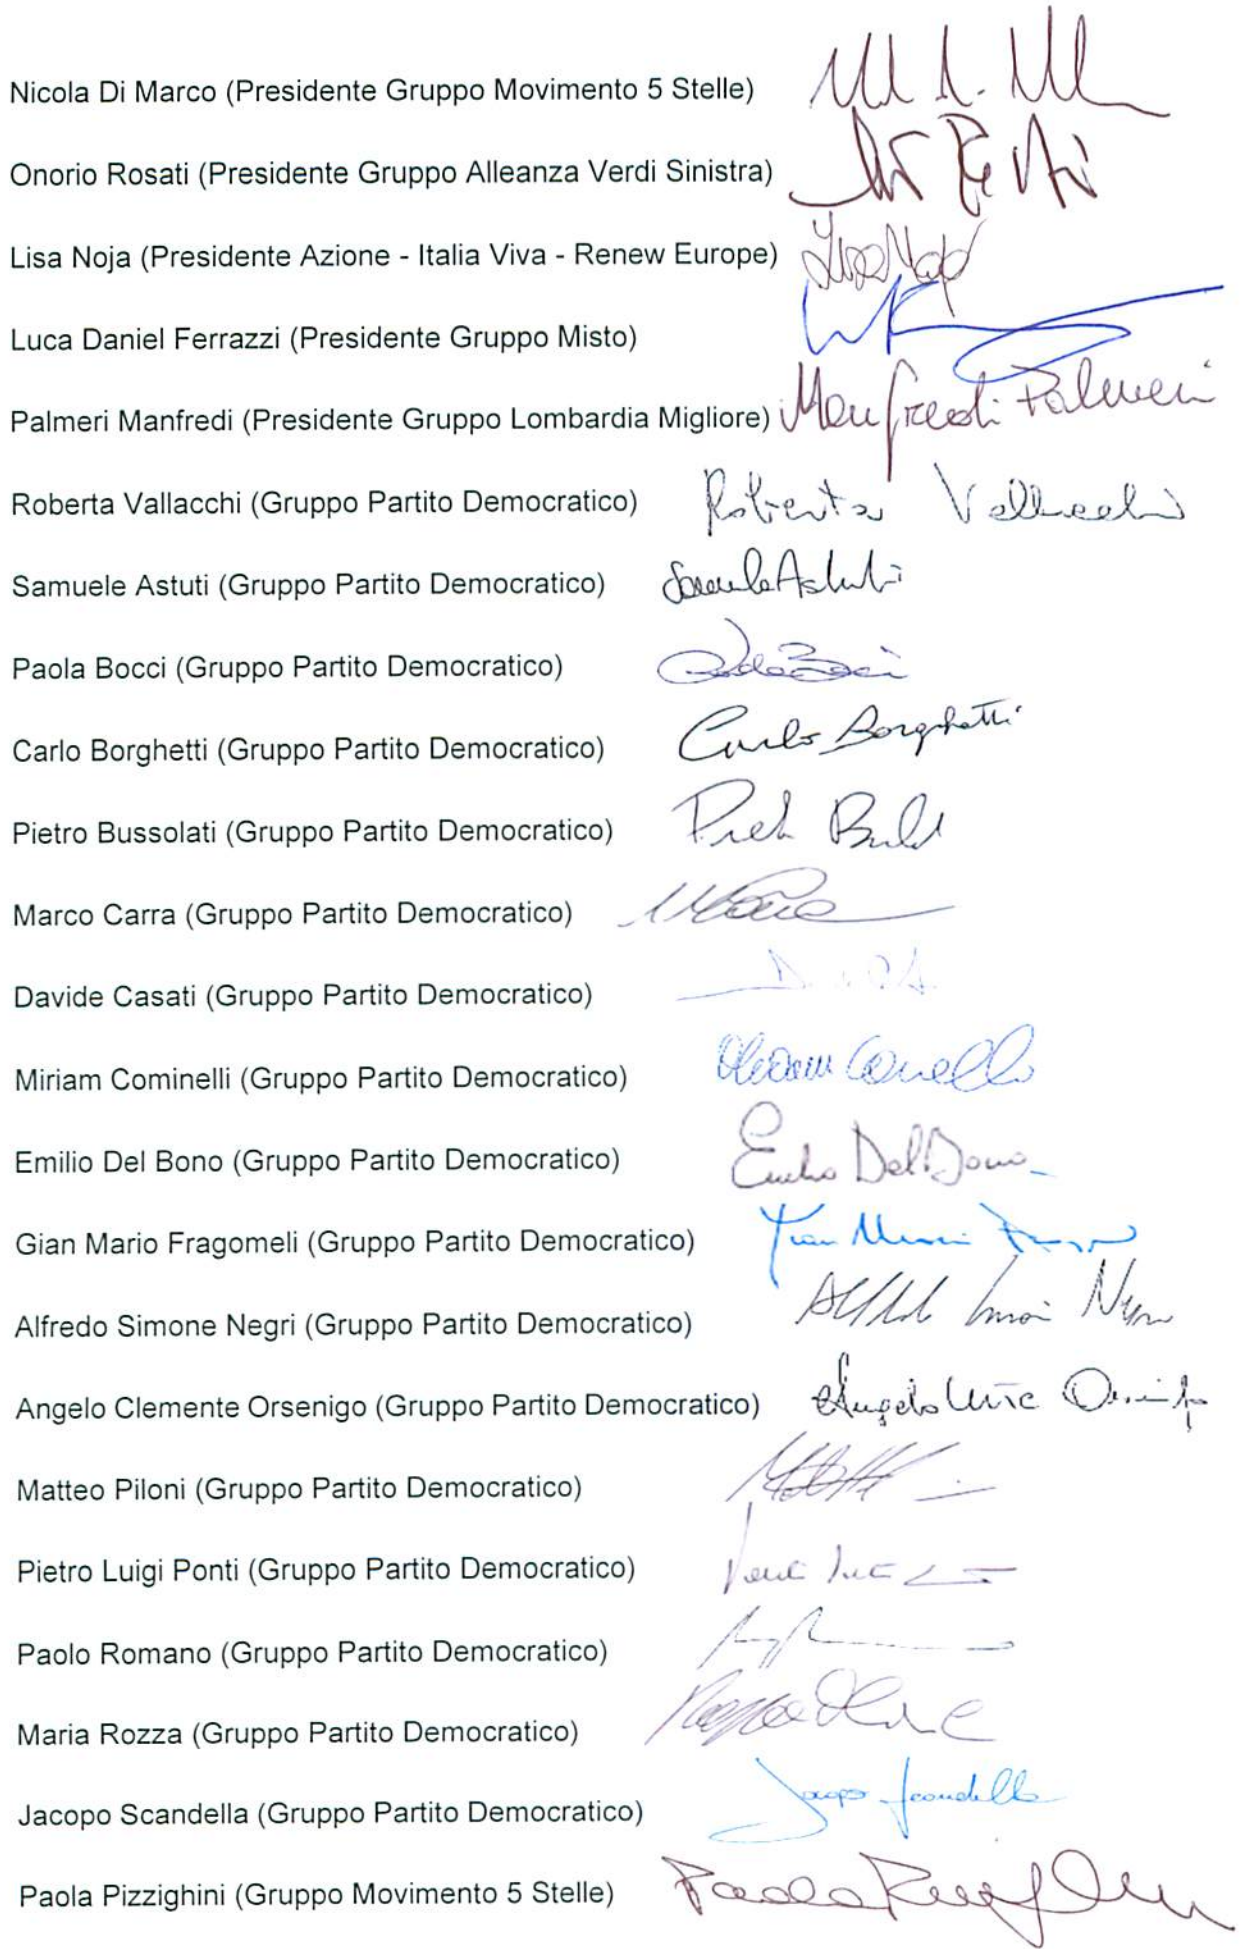 Nicola Di Marco (Presidente Gruppo Movimento 5 Stelle)
Onorio Rosati (Presidente Gruppo Alleanza Verdi Sinistra)
Lisa Noja (Presidente Azione - Italia Viva - Renew Europe) Lisa Noja
Luca Daniel Ferrazzi (Presidente Gruppo Misto)
Palmeri Manfredi (Presidente Gruppo Lombardia Migliore) Manfredi Palmeri
Roberta Vallacchi (Gruppo Partito Democratico) Roberta Vallacchi
Samuele Astuti (Gruppo Partito Democratico) Samuele Astuti
Paola Bocci (Gruppo Partito Democratico)
Carlo Borghetti (Gruppo Partito Democratico) Carlo Borghetti
Pietro Bussolati (Gruppo Partito Democratico)
Marco Carra (Gruppo Partito Democratico)
Davide Casati (Gruppo Partito Democratico)
Miriam Cominelli (Gruppo Partito Democratico)
Emilio Del Bono (Gruppo Partito Democratico) Emilio Del Bono
Gian Mario Fragomeli (Gruppo Partito Democratico)
Alfredo Simone Negri (Gruppo Partito Democratico)
Angelo Clemente Orsenigo (Gruppo Partito Democratico) Angelo
Matteo Piloni (Gruppo Partito Democratico)
Pietro Luigi Ponti (Gruppo Partito Democratico)
Paolo Romano (Gruppo Partito Democratico)
Maria Rozza (Gruppo Partito Democratico)
Jacopo Scandella (Gruppo Partito Democratico) Jacopo Scandella
Paola Pizzighini (Gruppo Movimento 5 Stelle) Paola